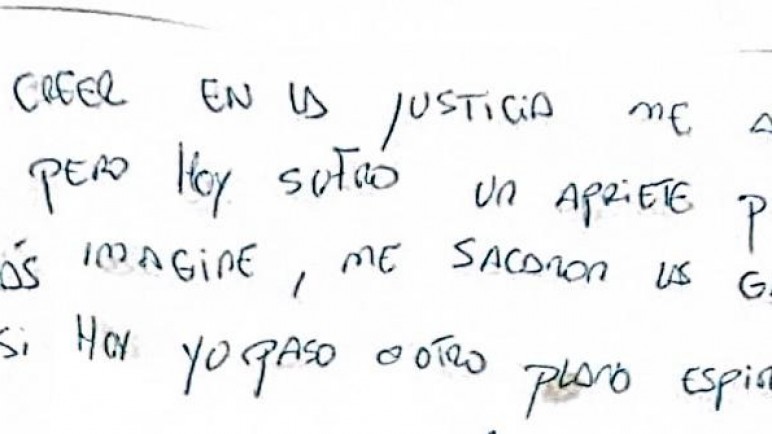 CREER EN LA JUSTICIA ME A
PERO HOY SUFRO UN APRIETE P
ÁS IMAGINE, ME SACARON LAS G
SI HOY YO PASO A OTRO PLANO ESPIR